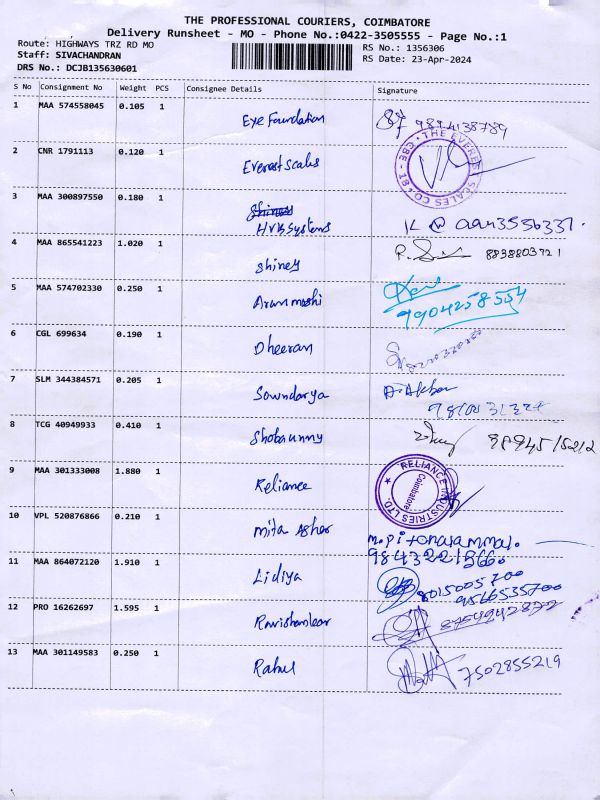 THE PROFESSIONAL COURIERS, COIMBATORE
Delivery Runsheet - MO - Phone No.:0422-3505555 - Page No.:1
Route: HIGHWAYS TRZ RD MO
RS No.: 1356306
Staff: SIVACHANDRAN
RS Date: 23-Apr-2024
DRS No.: DCJB135630601
S No Consignment No Weight PCS Consignee Details Signature
1 MAA 574558045 0.105 1 Eye Foundation 9894138789
2 CNR 1791113 0.120 1 Everest Scales
THE EVEREST SCALES CO. CBE - 18
3 MAA 300897550 0.180 1 Shiney
HVBSystems
4 MAA 865541223 1.020 1 Shiney 8838803721
5 MAA 574702330 0.250 1 Arunmozhi
9904258554
6 CGL 699634 0.190 1 Dheeran
7 SLM 344384571 0.205 1 Sowndarya A. Akbar
8 TCG 40949933 0.410 1 Shobaunny
9 MAA 301333008 1.880 1 Reliance
RELIANCE INDUSTRIES LTD. Coimbatore
10 VPL 520876866 0.210 1 Mita Asher
9843221566
11 MAA 864072120 1.910 1 Lidiya 8015005700
9566535700
12 PRO 16262697 1.595 1 Ravishankar 8754942872
13 MAA 301149583 0.250 1 Rahul 7502855219